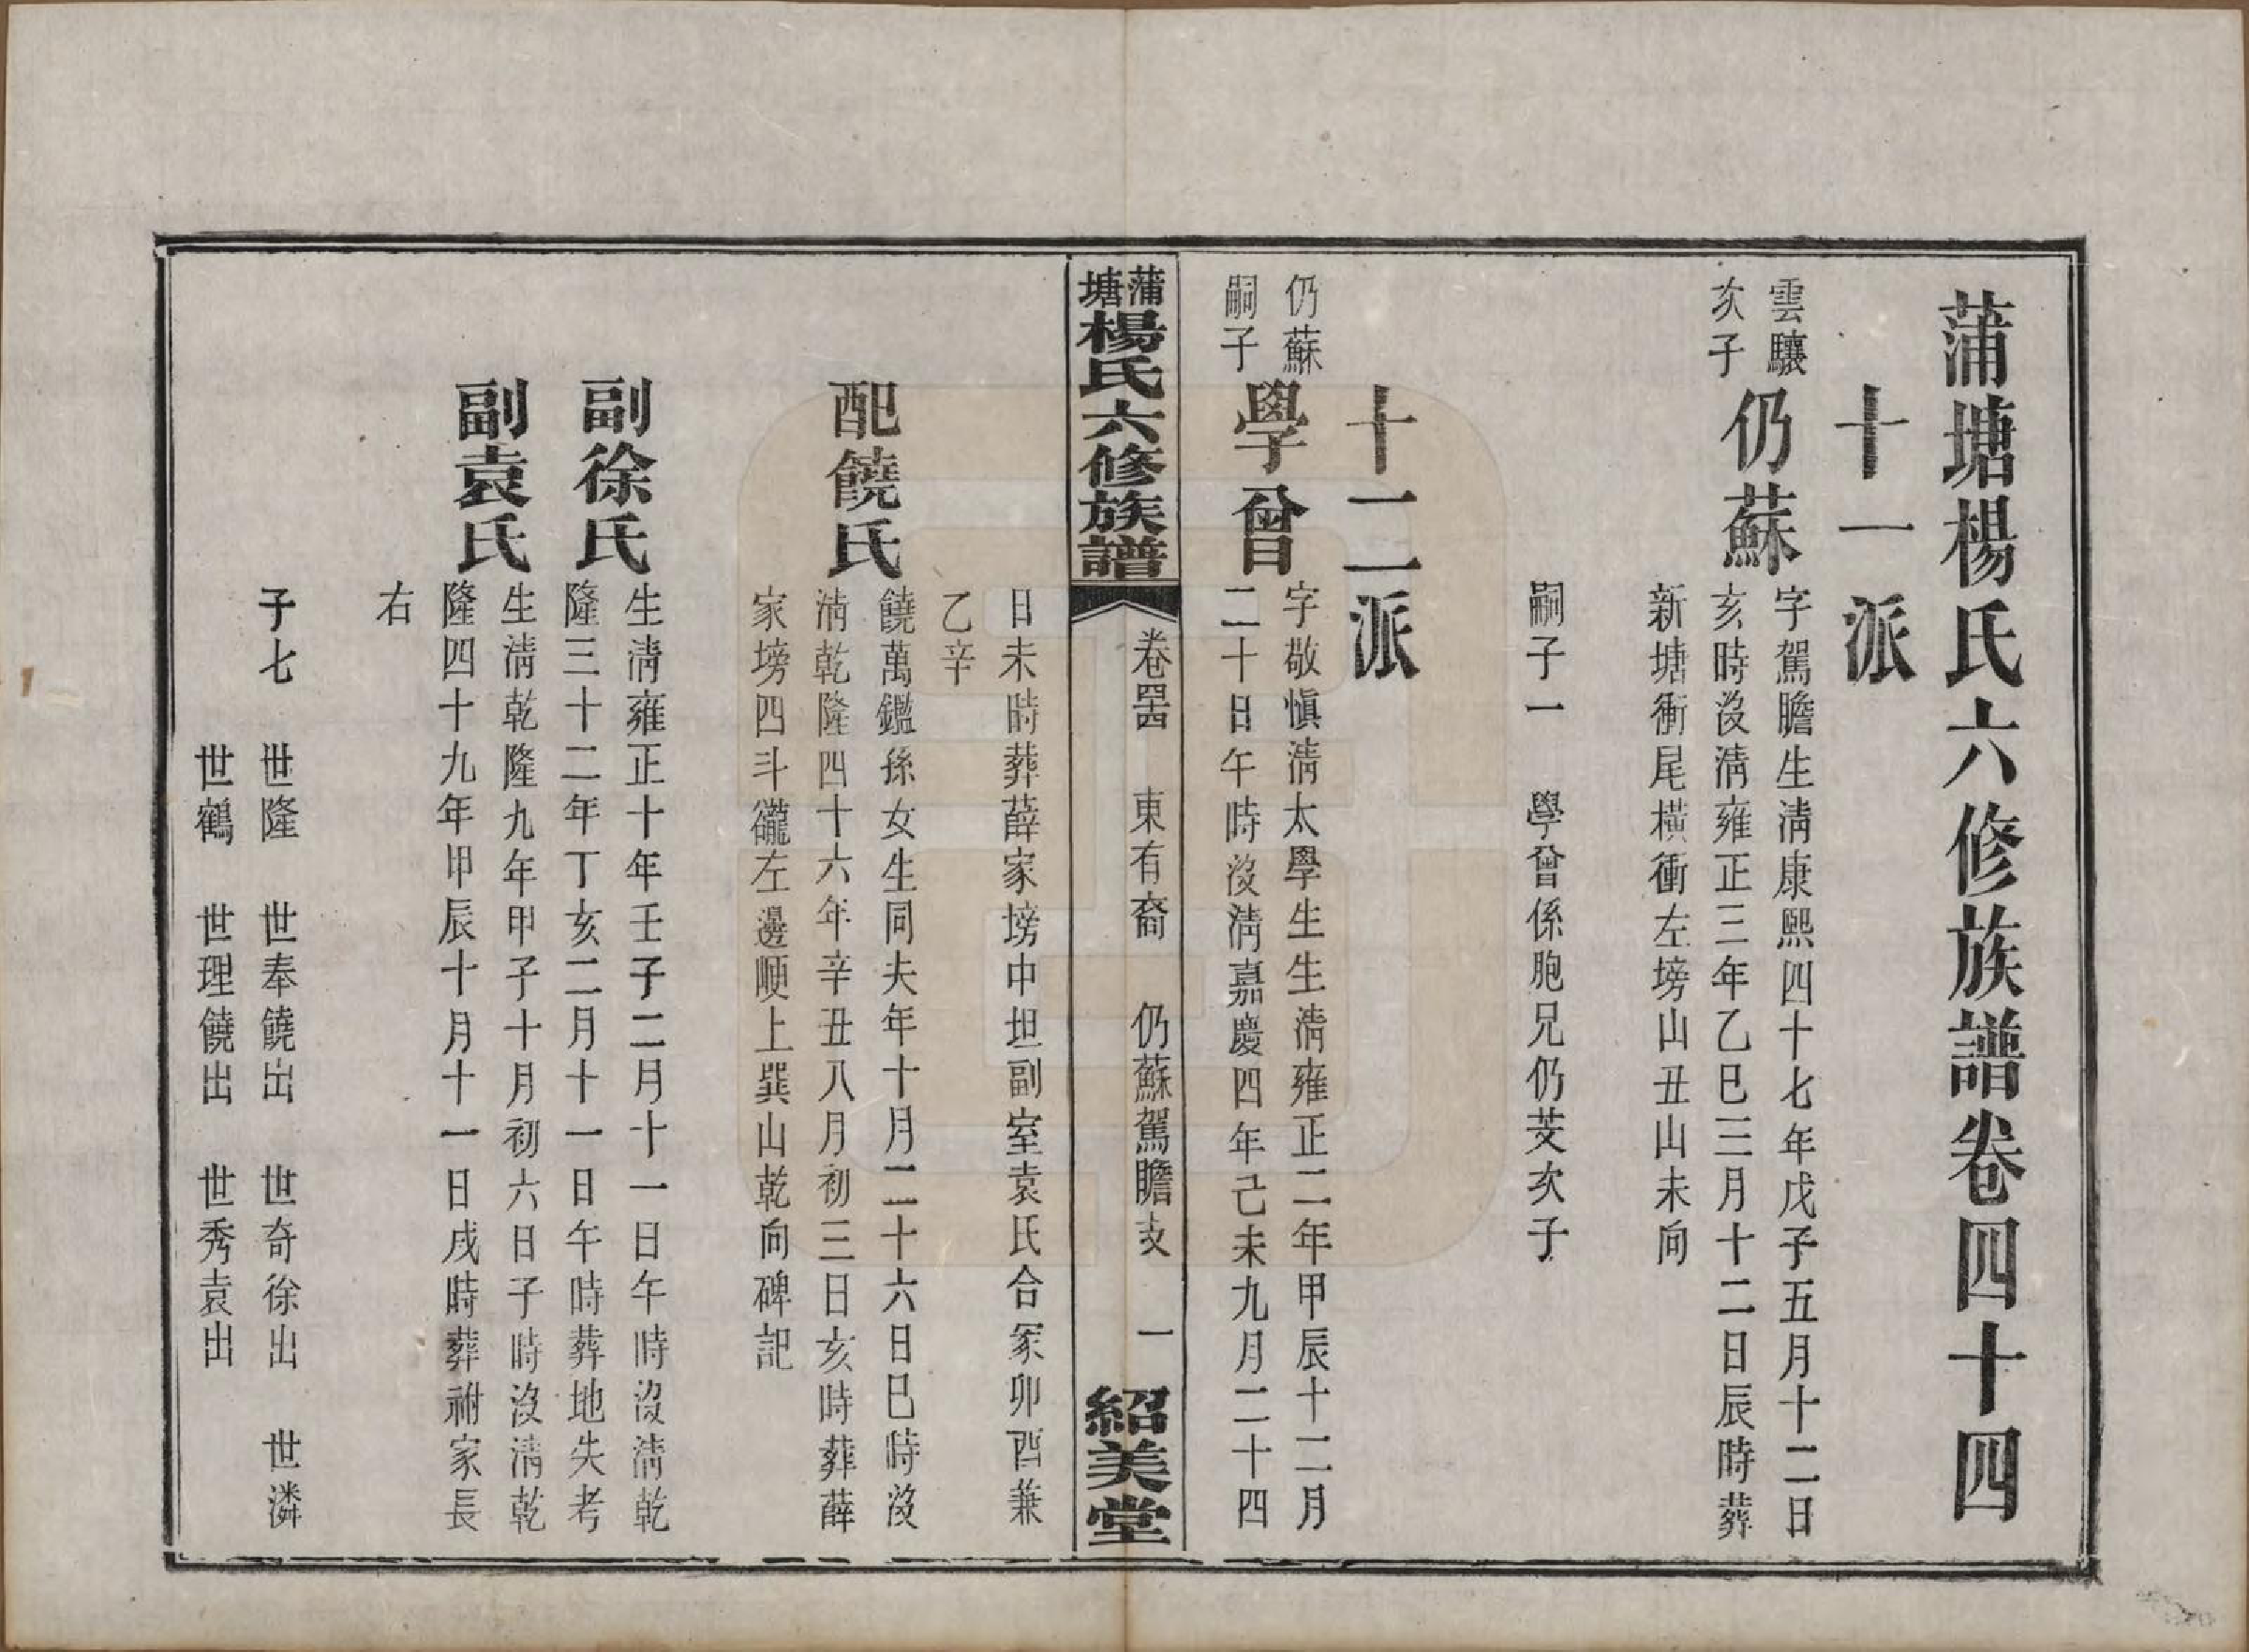 蒲塘楊氏六修族譜卷四十四
十一派
雲驤
次子
仍蘇
字駕瞻生清康熙四十七年戊子五月十二日
亥時沒清雍正三年乙巳三月十二日辰時葬
新塘衝尾橫衝左塝山丑山未向
嗣子一　學曾係胞兄仍芰次子
十二派
仍蘇
嗣子
學曾
字敬慎清太學生生清雍正二年甲辰十二月
二十日午時沒清嘉慶四年己未九月二十四
蒲塘楊氏六修族譜　卷四四　東有裔　仍蘇駕瞻支　一　紹美堂
日未時葬薛家塝中坦副室袁氏合冢卯酉兼
乙辛
配饒氏
饒萬鑑孫女生同夫年十月二十六日巳時沒
清乾隆四十六年辛丑八月初三日亥時葬薛
家塝四斗𥗬左邊順上巽山乾向碑記
副徐氏
生清雍正十年壬子二月十一日午時沒清乾
隆三十二年丁亥二月十一日午時葬地失考
副袁氏
生清乾隆九年甲子十月初六日子時沒清乾
隆四十九年甲辰十月十一日戌時葬祔家長
右
子七　世隆　世奉饒出　世奇徐出　世潾
世鶴　世理饒出　世秀袁出